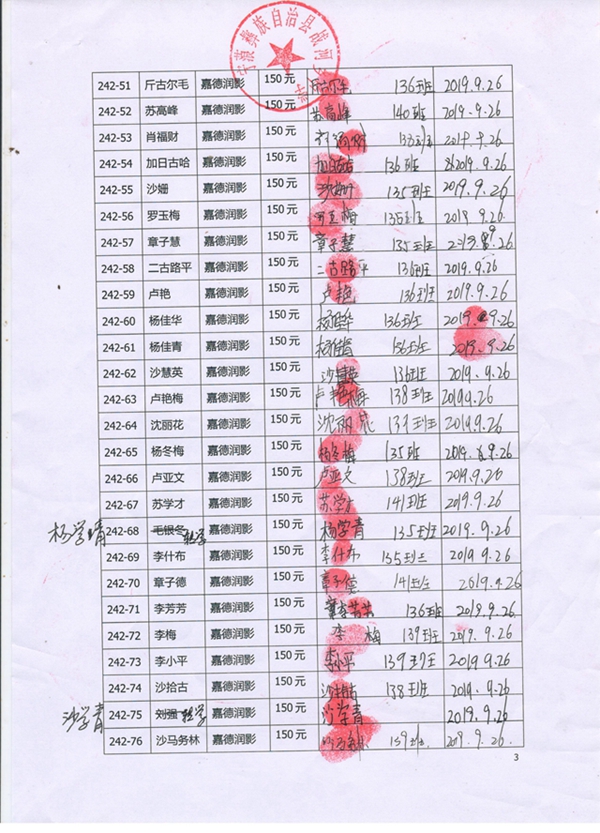 宁蒗彝族自治县战河
242-51 斤古尔毛 嘉德润影 150元 136班 2019.9.26
242-52 苏高峰 嘉德润影 150元 苏高峰 140班 2019.9.26
242-53 肖福财 嘉德润影 150元
242-54 加日古哈 嘉德润影 150元 136班 2019.9.26
242-55 沙姗 嘉德润影 150元 沙姗 135班 2019.9.26
242-56 罗玉梅 嘉德润影 150元 9.26
242-57 章子慧 嘉德润影 150元 章子慧 135班
242-58 二古路平 嘉德润影 150元 二古路平 136班 2019.9.26
242-59 卢艳 嘉德润影 150元 卢艳 136班 2019.9.26
242-60 杨佳华 嘉德润影 150元 杨佳华 136班 2019.9.26
242-61 杨佳青 嘉德润影 150元 136班 2019.9.26
242-62 沙慧英 嘉德润影 150元 沙慧英 136班 2019.9.26
242-63 卢艳梅 嘉德润影 150元 卢艳梅 138班 2019.9.26
242-64 沈丽花 嘉德润影 150元 沈丽花 137班 2019.9.26
242-65 杨冬梅 嘉德润影 150元 杨冬梅 135班 2019.9.26
242-66 卢亚文 嘉德润影 150元 卢亚文 138班 2019.9.26
242-67 苏学才 嘉德润影 150元 苏学才 141班 2019.9.26
杨学青 242-68 毛银冬 转学 嘉德润影 150元 杨学青 135班 2019.9.26
242-69 李什布 嘉德润影 150元 李什布 135班 2019.9.26
242-70 章子德 嘉德润影 150元 章子德 141班 2019.9.26
242-71 李芳芳 嘉德润影 150元 136班 2019.9.26
242-72 李梅 嘉德润影 150元 李梅 139班 2019.9.26
242-73 李小平 嘉德润影 150元 李小平 139班 2019.9.26
242-74 沙拾古 嘉德润影 150元 沙拾古 138班 2019.9.26
沙学青 242-75 刘强 转学 嘉德润影 150元 沙学青 2019.9.26
242-76 沙马务林 嘉德润影 150元 139班 2019.9.26.
3